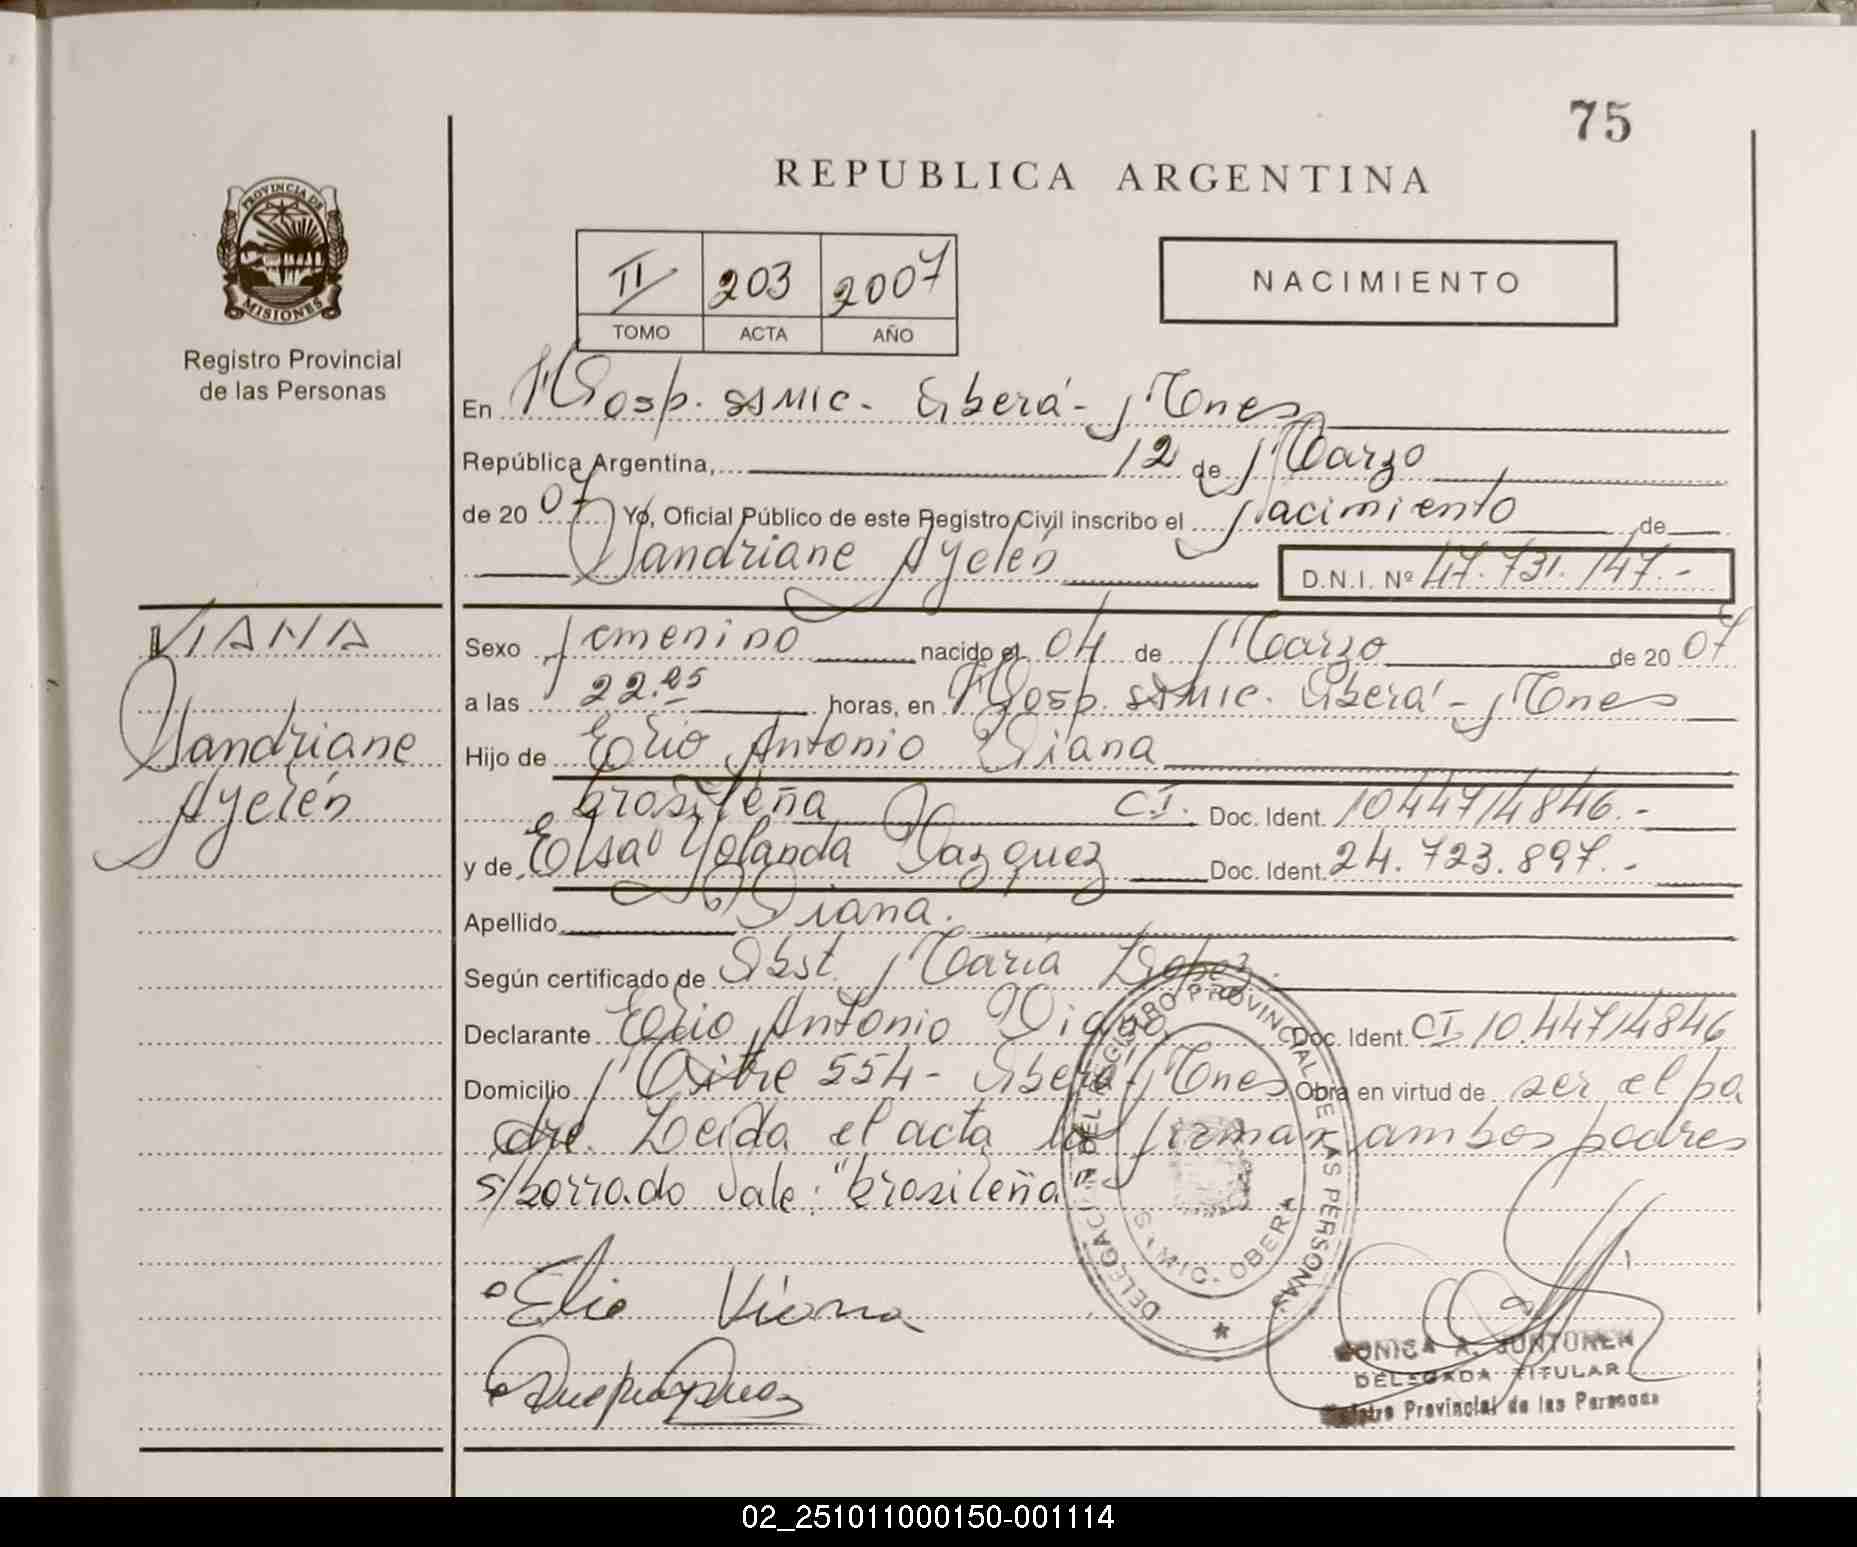 75
REPUBLICA ARGENTINA
PROVINCIA DE
MISIONES
Registro Provincial
de las Personas
II 203 2007
TOMO ACTA AÑO
NACIMIENTO
En Hosp. SAMIC - Oberá - Mnes
República Argentina, 12 de Marzo
de 20 07 Yo, Oficial Público de este Registro Civil inscribo el Nacimiento de
Sandriane Ayelén D.N.I. Nº 47.731.147.-
VIANA
Sandriane
Ayelén
Sexo femenino nacido el 04 de Marzo de 20 07
a las 22.25 horas, en Hosp. SAMIC. Oberá - Mnes
Hijo de Elio Antonio Viana
brasileña CI. Doc. Ident. 1044714846.-
y de Elsa Yolanda Vazquez Doc. Ident. 24.723.897.-
Apellido Viana.
Según certificado de Obst. María Lopez.
Declarante Elio Antonio Viana Doc. Ident. CI 10.44714846
Domicilio Mitre 554 - Oberá - Mnes Obra en virtud de ser el pa
dre. Leída el acta la firman ambos padres
s/borrado vale: "brasileña"
DELEGACION DEL REGISTRO PROVINCIAL DE LAS PERSONAS
SAMIC - OBERA
Elio Viana
MONICA A. JUNTUNEN
DELEGADA TITULAR
Registro Provincial de las Personas
02_251011000150-001114